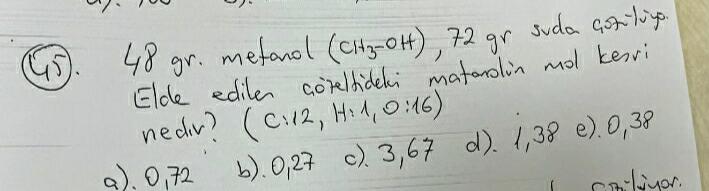 45). 48 gr. metanol (CH3-OH), 72 gr suda çözülüyor.
Elde edilen çözeltideki matanolün mol kesri
nedir? (C:12, H:1, O:16)
a). 0,72 b). 0,27 c). 3,67 d). 1,38 e). 0,38
çözülüyor.